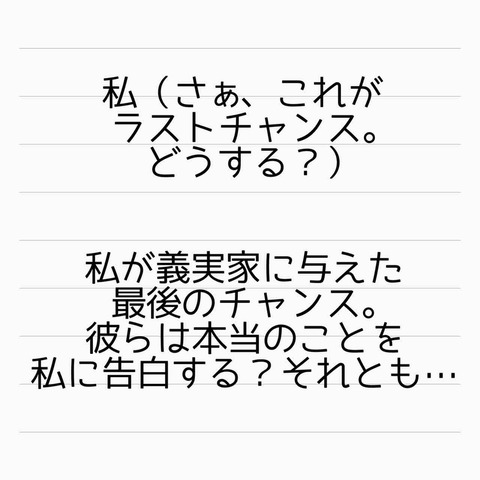 私(さぁ、これが
ラストチャンス。
どうする?)
私が義実家に与えた
最後のチャンス。
彼らは本当のことを
私に告白する?それとも…